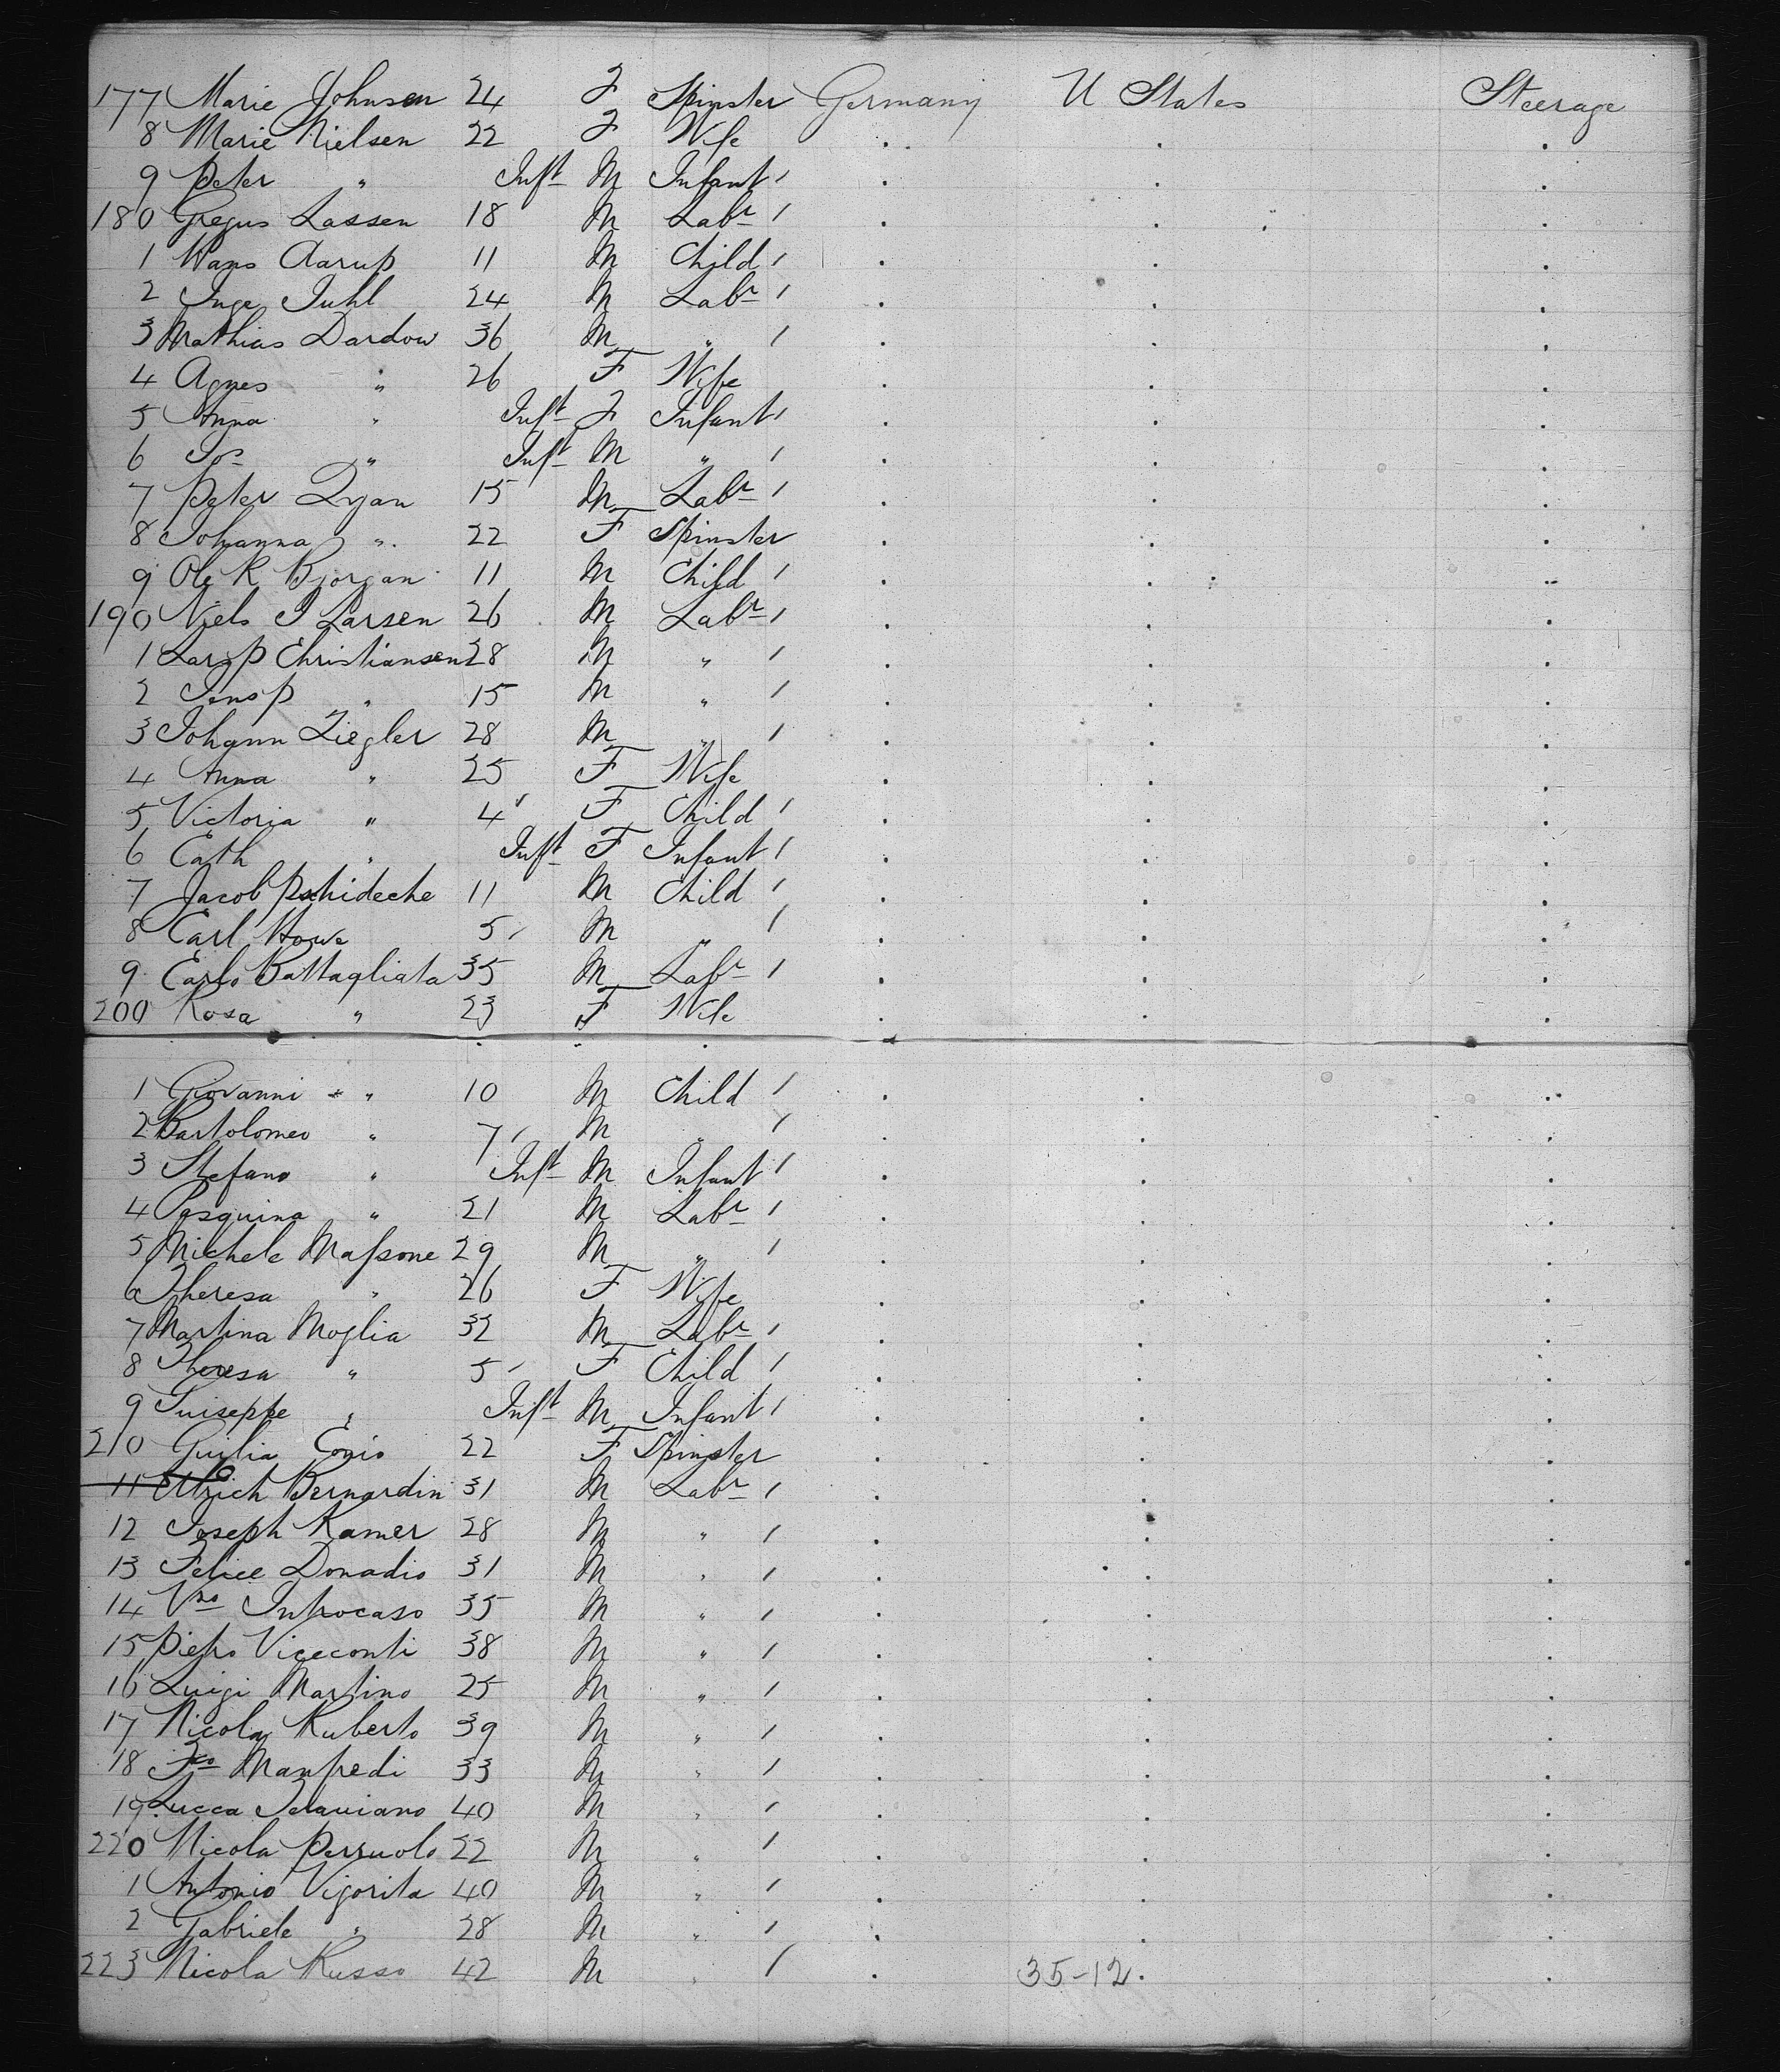 177 Marie Johnsen 24 F Spinster Germany U States Steerage
8 Marie Nielsen 22 F Wife . . .
9 Peter " Inft M Infant / . . .
180 Gregus Lassen 18 M Labr / . . .
1 Hans Aarup 11 M Child / . . .
2 Inge Juhl 24 M Labr / . . .
3 Mathias Dardow 36 M " / . . .
4 Agnes " 26 F Wife . . .
5 Anna " Inft F Infant / . . .
6 Jos " Inft M " / . . .
7 Peter Ryan 15 M Labr / . . .
8 Johanna " 22 F Spinster . . .
9 Ole K Bjorgan 11 M Child / . . .
190 Niels J Larsen 26 M Labr / . . .
1 Lars P Christiansen 28 M " / . . .
2 Jens P " 15 M " / . . .
3 Johann Ziegler 28 M " / . . .
4 Anna " 25 F Wife . . .
5 Victoria " 4 F Child / . . .
6 Cath " Inft F Infant / . . .
7 Jacob 11 M Child / . . .
8 Carl Howe 5 M " / . . .
9 Carlo Battagliata 35 M Labr / . . .
200 Rosa " 23 F Wife . . .
1 Giovanni " 10 M Child / . . .
2 Bartolomeo " 7 M " / . . .
3 Stefano " Inft M Infant / . . .
4 Pasquina " 21 M Labr / . . .
5 Michele Massone 29 M " / . . .
6 Theresa " 26 F Wife . . .
7 Martina Moglia 32 M Labr / . . .
8 Theresa " 5 F Child / . . .
9 Guiseppe " Inft M Infant / . . .
210 Guilia 22 F Spinster . . .
11 Ulrich Bernardin 31 M Labr / . . .
12 Joseph Kamer 28 M " / . . .
13 Felice Donadio 31 M " / . . .
14 Vno Introcaso 35 M " / . . .
15 Pietro Viceconti 38 M " / . . .
16 Luigi Martino 25 M " / . . .
17 Nicola Ruberto 39 M " / . . .
18 Fco Manfredi 33 M " / . . .
19 Lucca 40 M " / . . .
220 Nicola Perruolo 22 M " / . . .
1 Antonio Vigorita 40 M " / . . .
2 Gabriele " 28 M " / . . .
223 Nicola Russo 42 M " / . 35-12. .